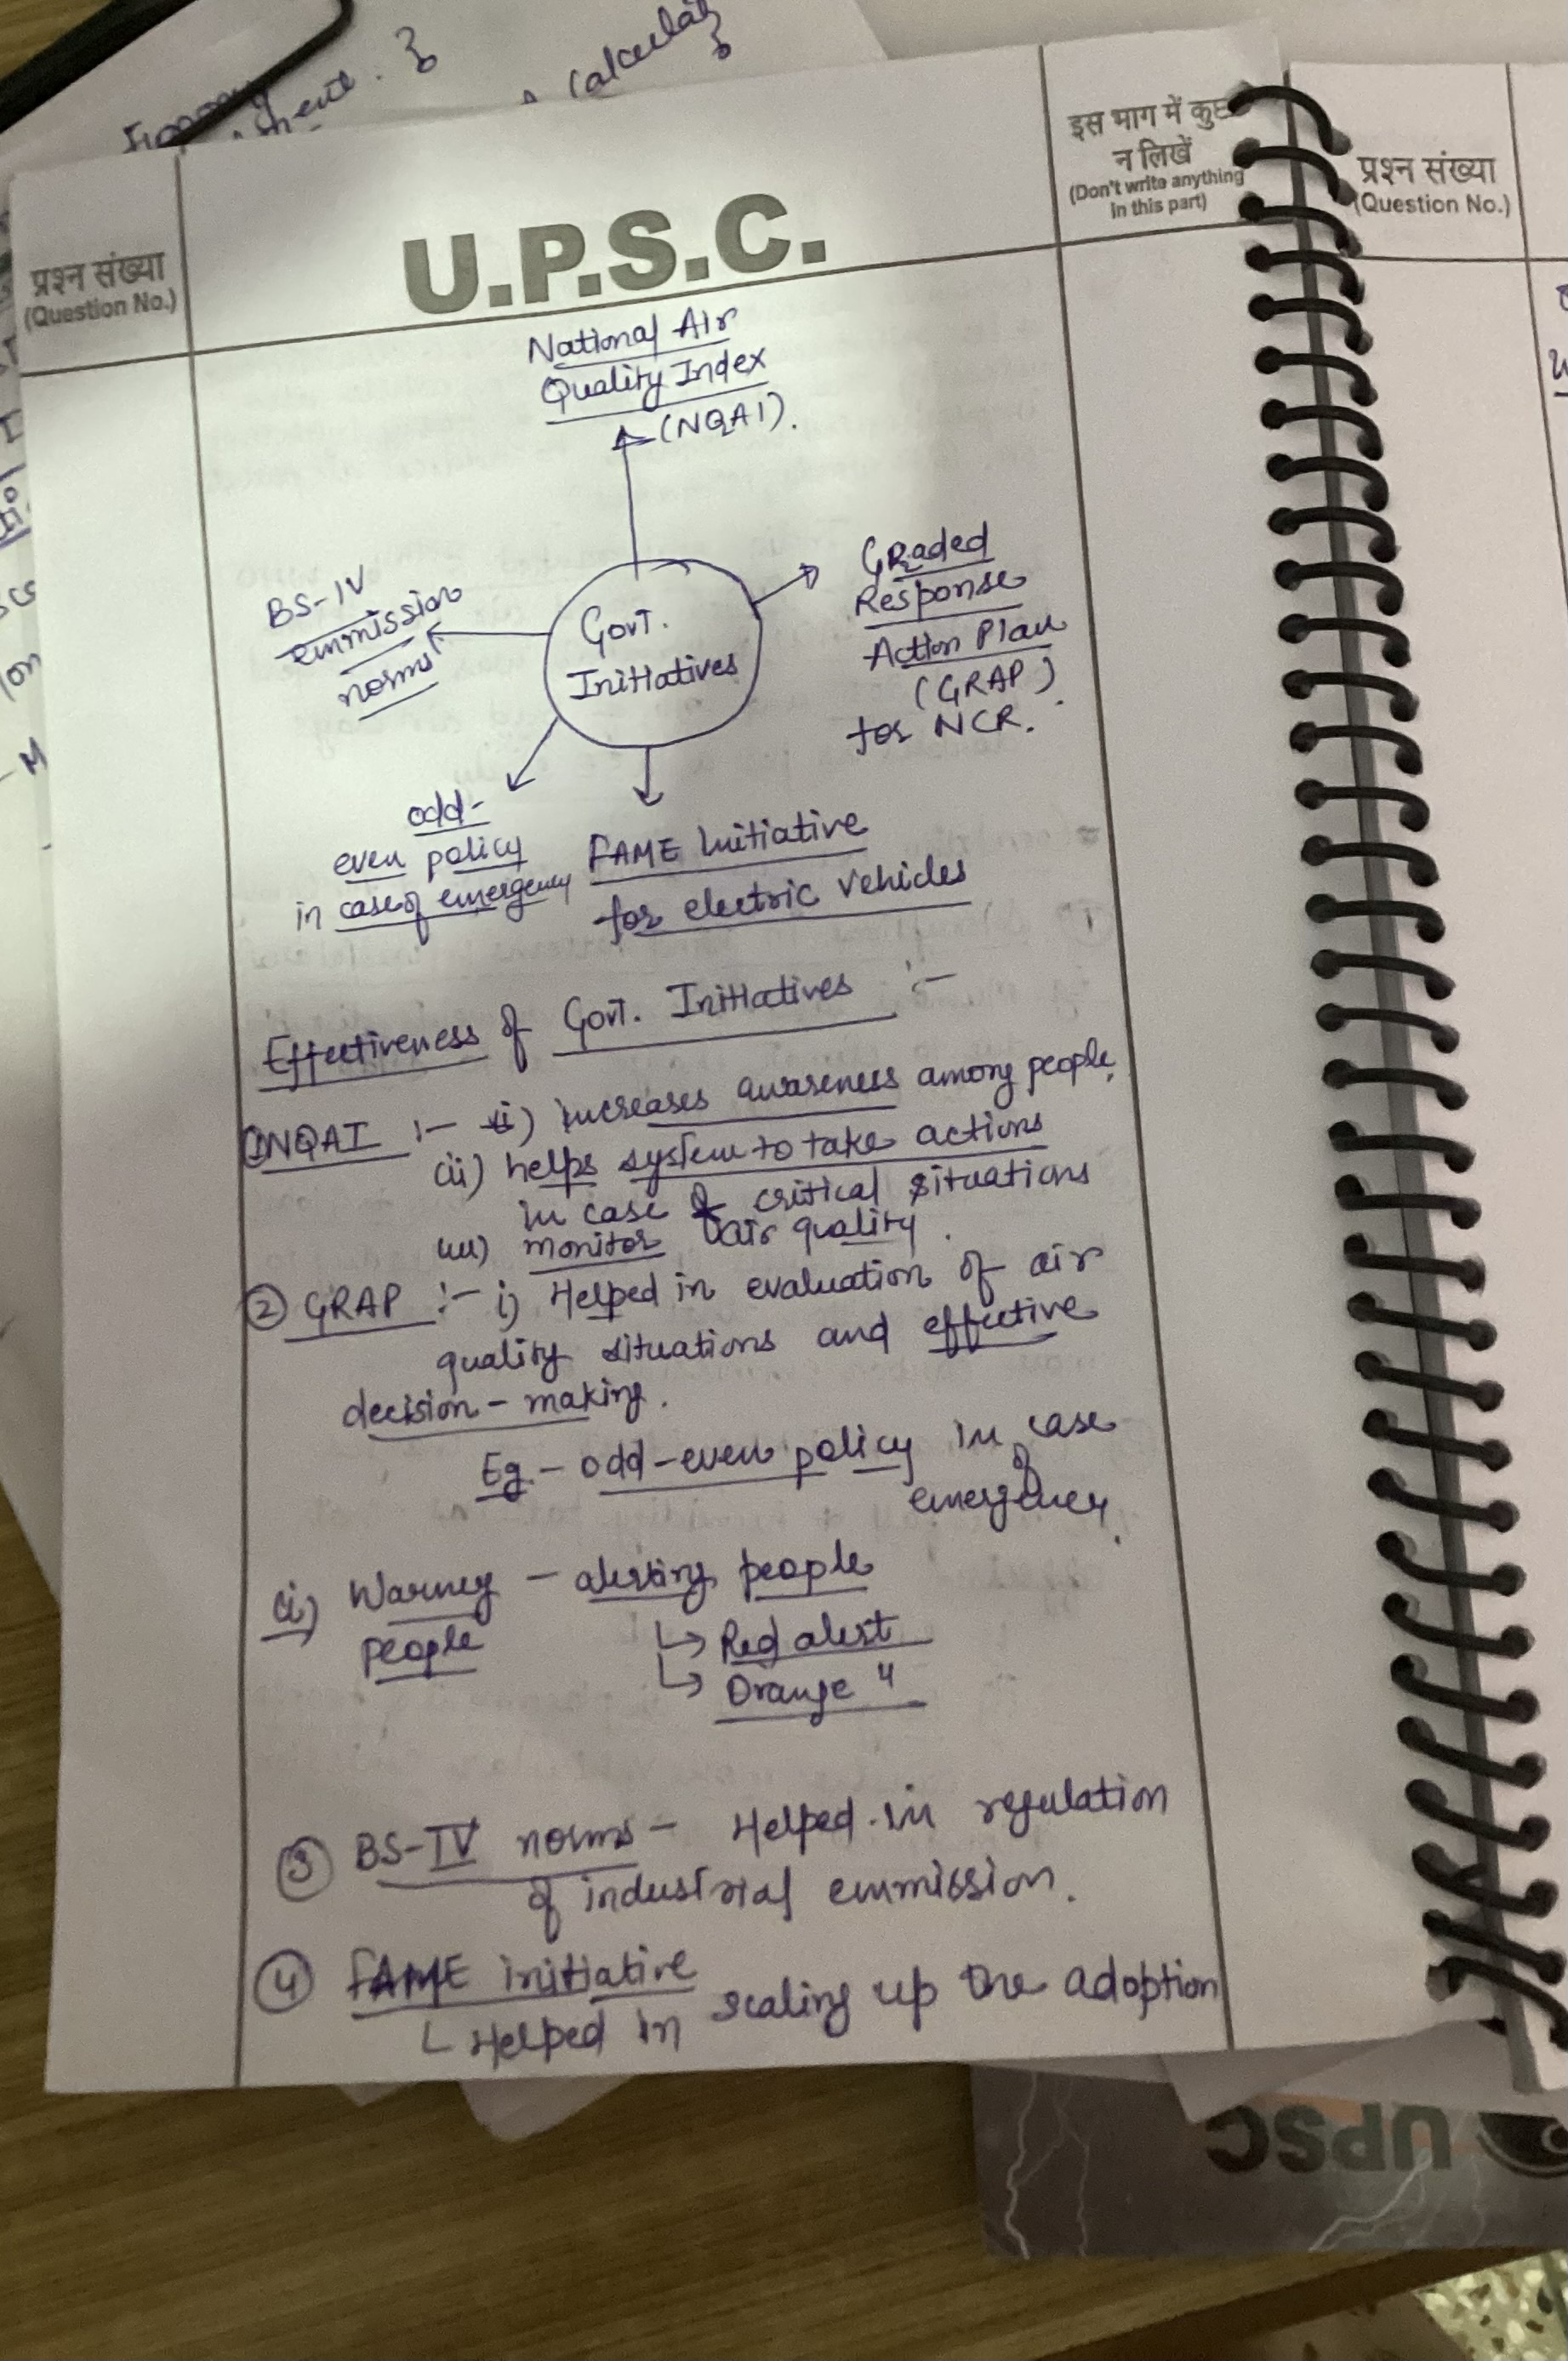 calculat
प्रश्न संख्या
(Question No.)
U.P.S.C.
इस भाग में कुछ
न लिखें
(Don't write anything
in this part)
प्रश्न संख्या
(Question No.)
National Air
Quality Index
(NQAI).
Graded
Response
Action Plan
(GRAP)
for NCR.
BS-IV
emmission
norms
Govt.
Initiatives
odd-
even policy
in case of emergency
FAME Initiative
for electric vehicles
Effectiveness of Govt. Initiatives :-
① NQAI :- i) increases awareness among people.
(ii) helps system to take actions
in case of critical situations
iii) monitor air quality.
② GRAP :- i) Helped in evaluation of air
quality situations and effective
decision-making.
Eg.- odd-even policy in case
of
emergency.
ii) Warning - alerting people
people
↳ Red alert
↳ Orange "
③ BS-IV norms - Helped in regulation
of industrial emmission.
④ FAME initiative
Helped in scaling up the adoption
UPSC